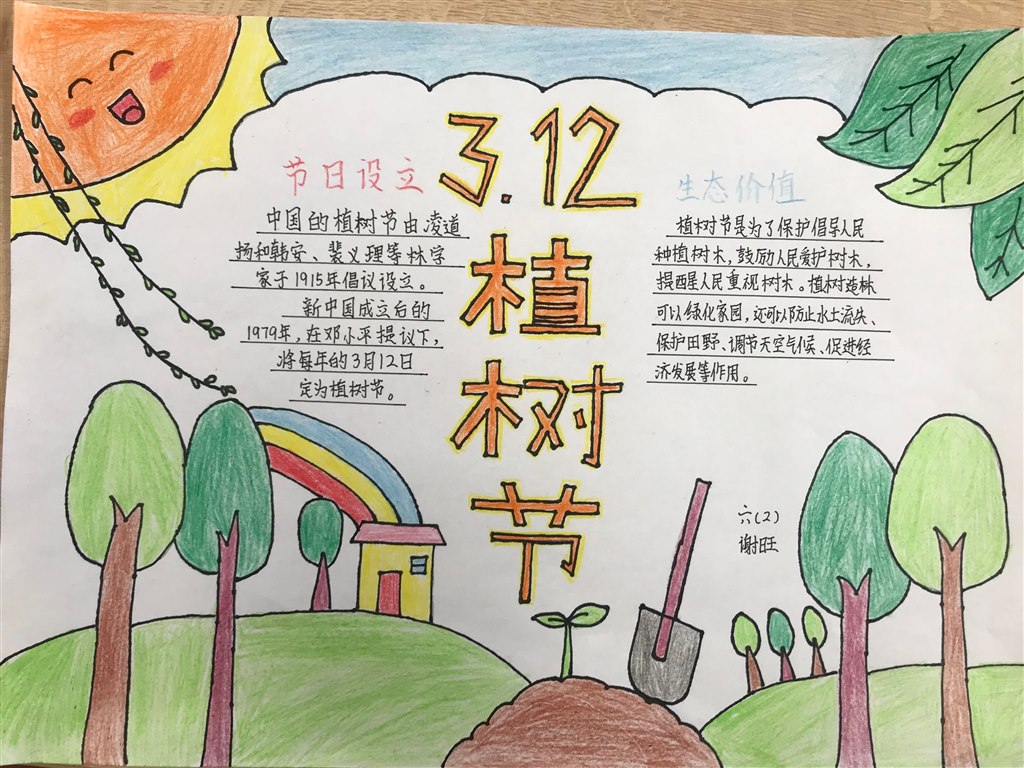 3.12
植
树
节
节日设立
中国的植树节由凌道
扬和韩安、裴义理等林学
家于1915年倡议设立。
新中国成立后的
1979年，在邓小平提议下，
将每年的3月12日
定为植树节。
生态价值
植树节是为了保护倡导人民
种植树木，鼓励人民爱护树木，
提醒人民重视树木。植树造林
可以绿化家园，还可以防止水土流失、
保护田野、调节天空气候、促进经
济发展等作用。
六(2)
谢旺